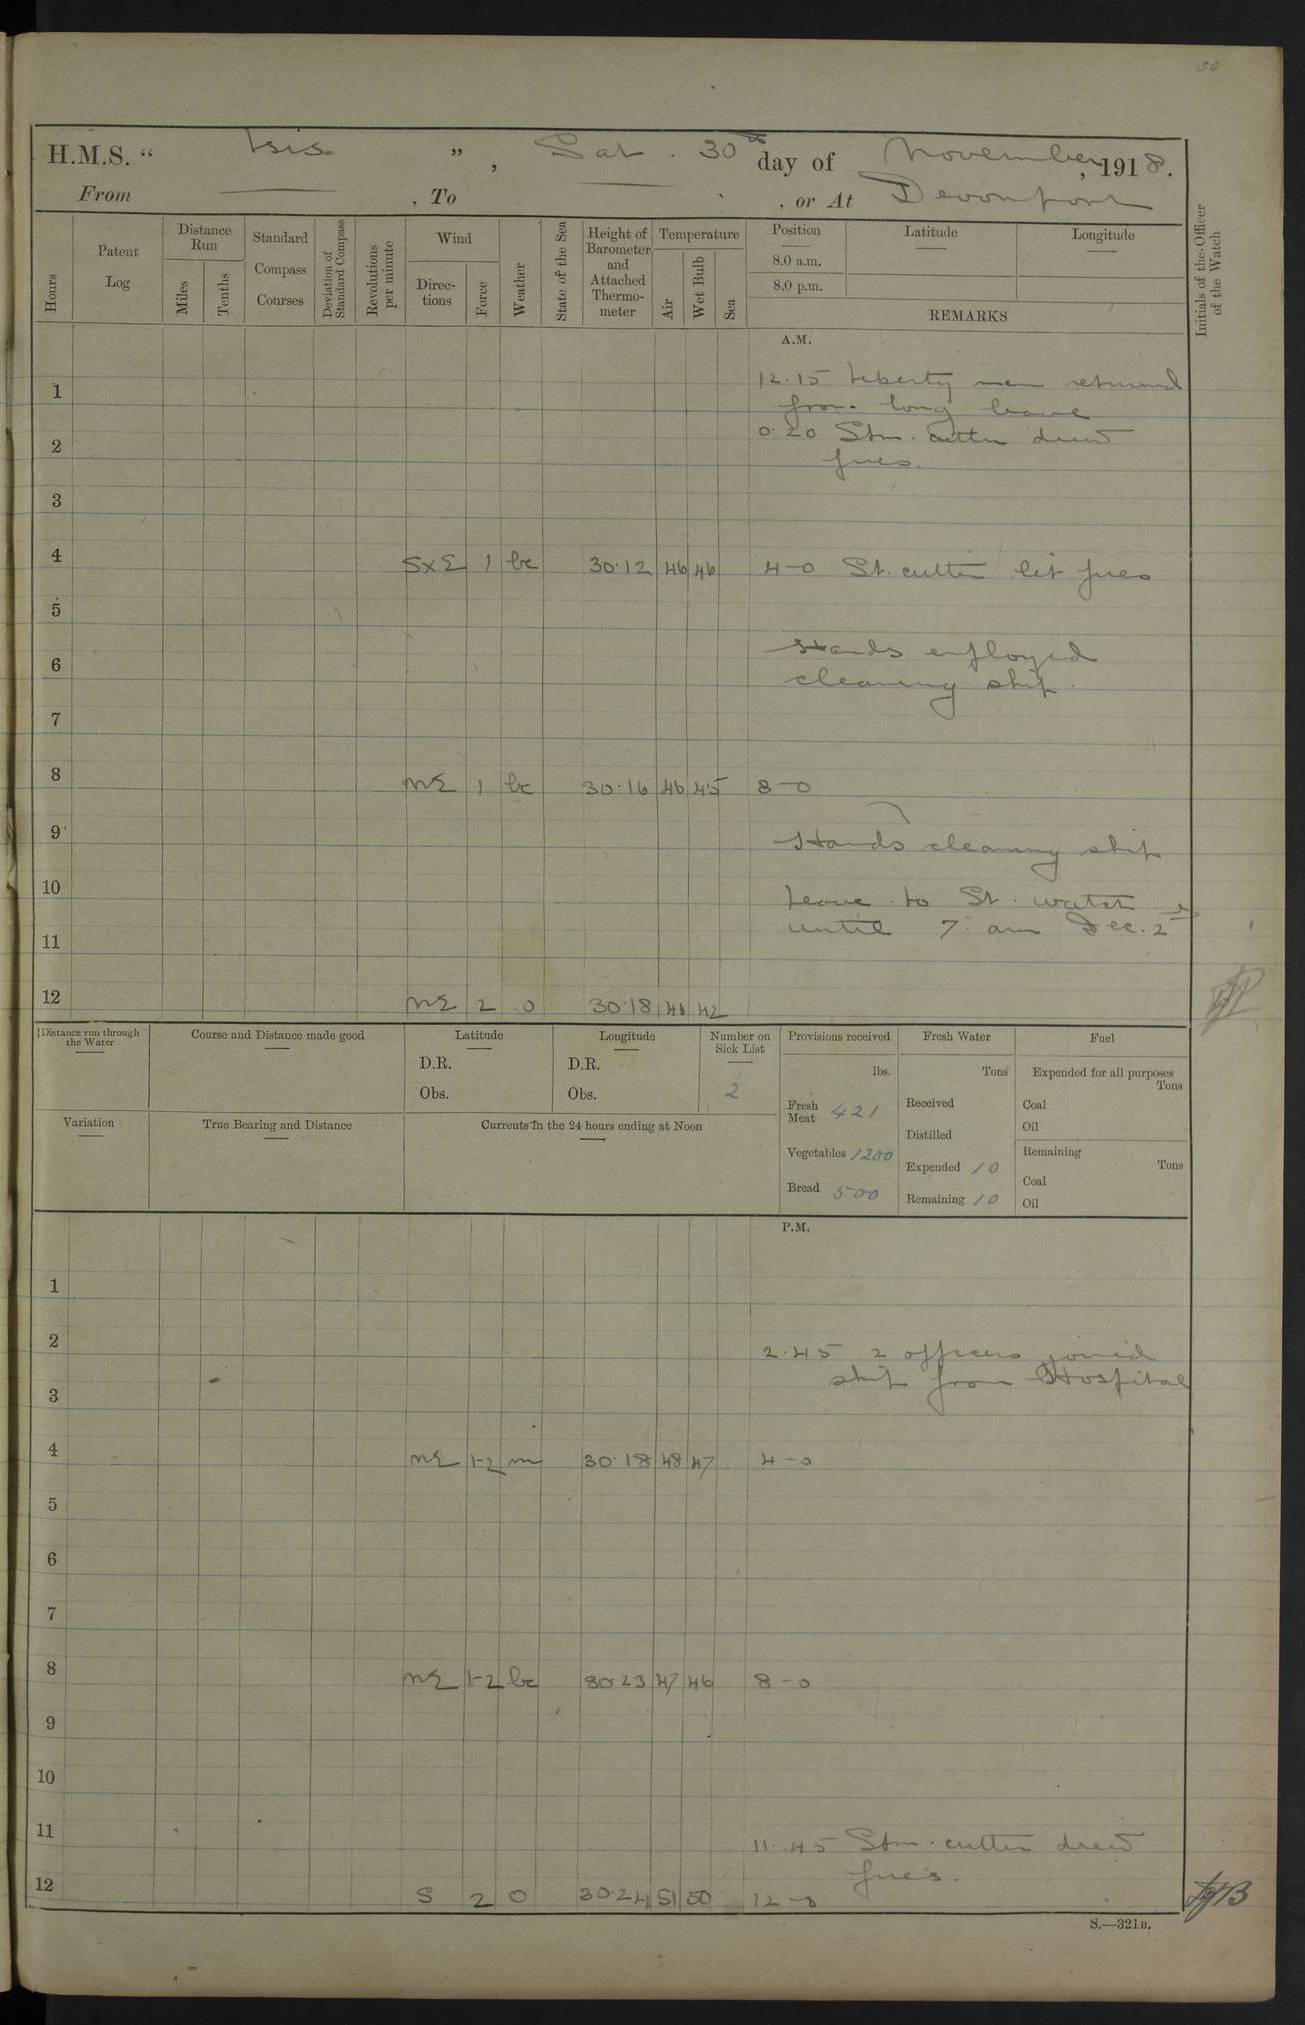 30
H.M.S. “ Isis ” , Sat. 30th day of November, 1918.
From , To , or At Devonport
Hours
Patent Log
Distance Run
Miles
Tenths
Standard Compass Courses
Deviation of Standard Compass
Revolutions per minute
Wind
Direc-tions
Force
Weather
State of the Sea
Height of Barometer and Attached Thermo-meter
Temperature
Air
Wet Bulb
Sea
Position
8.0 a.m.
8.0 p.m.
Latitude
Longitude
REMARKS
Initials of the Officer of the Watch
A.M.
12.15 Liberty men returned
1
from long leave
0.20 Stm. cutter drew
2
fires.
3
4 SxE 1 bc 30.12 46 46 4-0 St. cutter lit fires
5
Hands employed
6
cleaning ship.
7
8 NE 1 bc 30.16 46 45 8-0
9 Hands cleaning ship
10
Leave to St. watch
until 7. am Dec. 2nd
11
12 NE 2 o 30.18 42
Distance run through the Water
Course and Distance made good
Latitude
D.R.
Obs.
Longitude
D.R.
Obs.
Number on Sick List
2
Provisions received
lbs.
Fresh Meat 421
Vegetables 1200
Bread 500
Fresh Water
Tons
Received
Distilled
Expended 10
Remaining 10
Fuel
Expended for all purposes
Tons
Coal
Oil
Remaining
Tons
Coal
Oil
Variation
True Bearing and Distance
Currents in the 24 hours ending at Noon
P.M.
1
2
2.45 2 officers joined
ship from Hospital
3
4 NE 1-2 m 30.18 48 47 4-0
5
6
7
8 NE 1-2 bc 30.23 47 46 8-0
9
10
11
11.45 Stm. cutter drew
fires.
12 S 2 O 30.24 51 50 12-0
S.—321B.